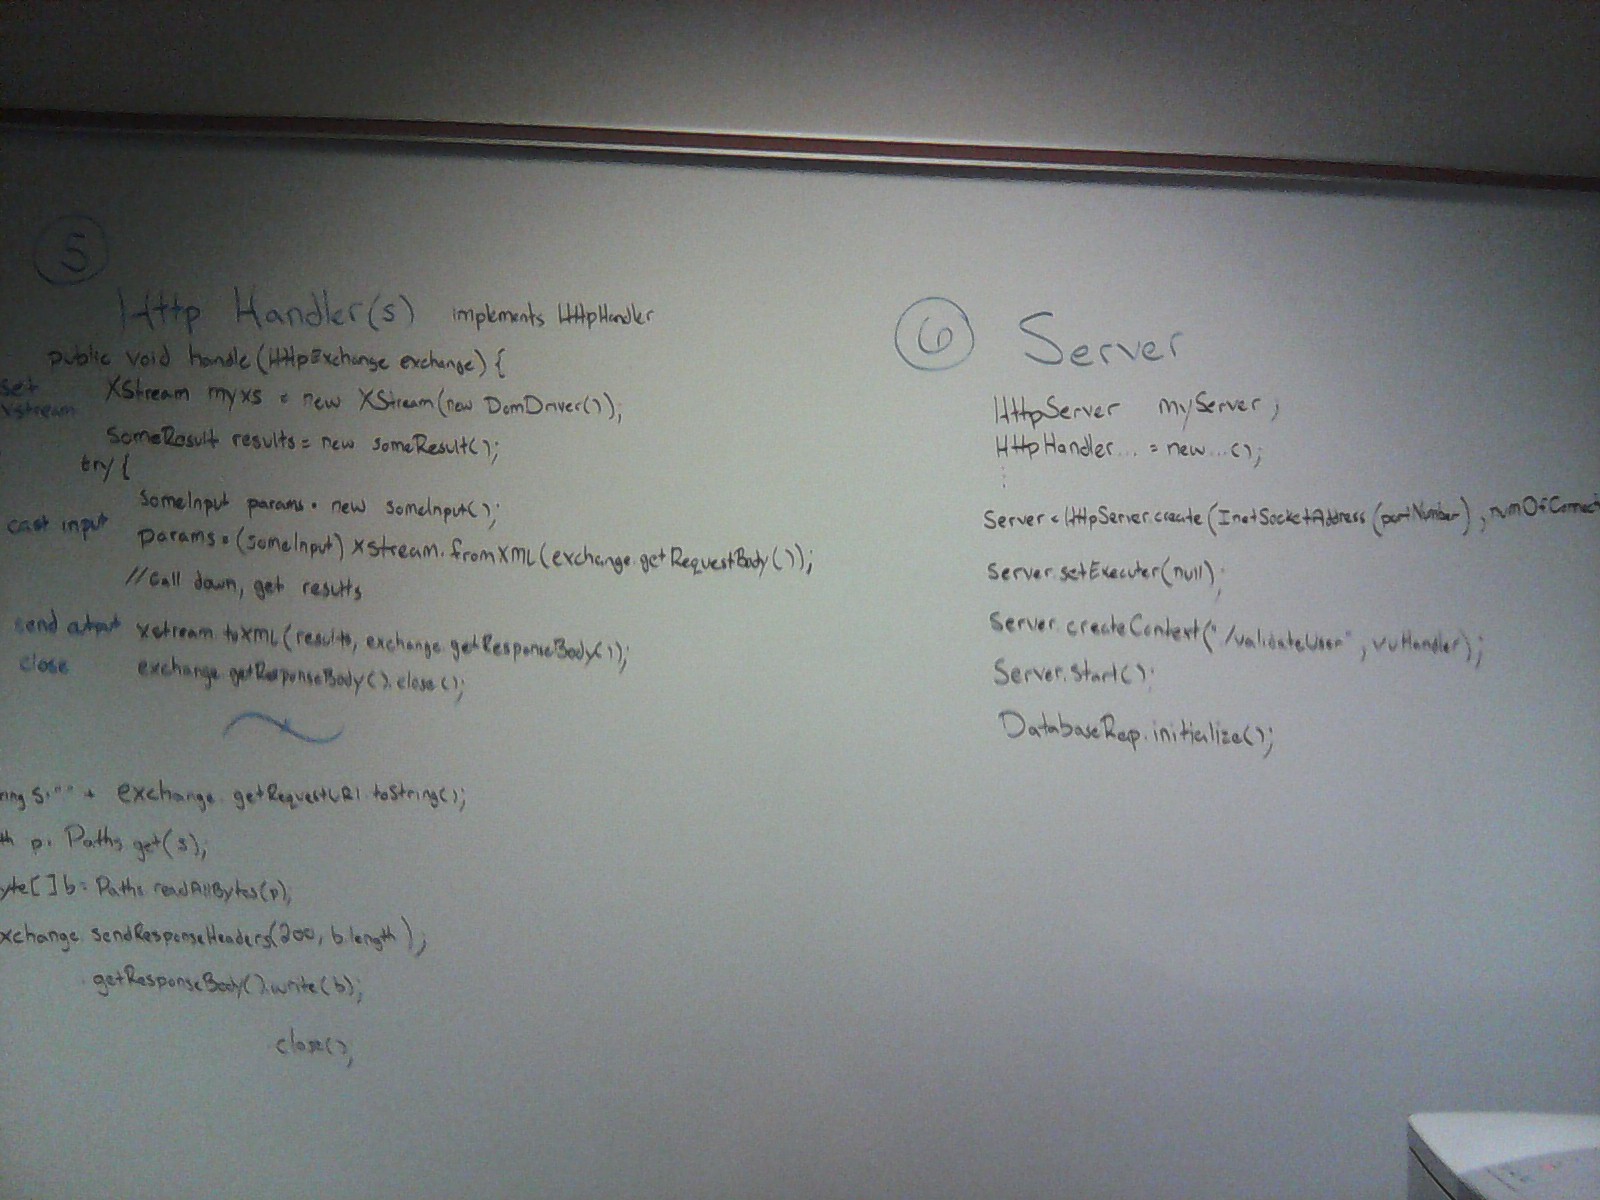 5
Http Handler(s) implements HttpHandler
public void handle(HttpExchange exchange) {
set xstream
XStream myxs = new XStream(new DomDriver());
SomeResult results = new someResult();
try {
someInput params = new someInput();
cast input
params = (someInput) xstream.fromXML(exchange.getRequestBody());
//Call down, get results
send output xstream.toXML(results, exchange.getResponseBody());
close exchange.getResponseBody().close();
ring s = "" + exchange.getRequestURI.toString();
th p = Paths.get(s);
yte[] b = Paths.readAllBytes(p);
xchange.sendResponseHeaders(200, b.length);
.getResponseBody().write(b);
close();
6 Server
HttpServer myServer;
HttpHandler... = new...();
Server = HttpServer.create(InetSocketAddress(portNumber), numOfConnect
Server.setExecuter(null);
Server.createContext("/validateUser", vuHandler);
Server.start();
DatabaseRep.initialize();